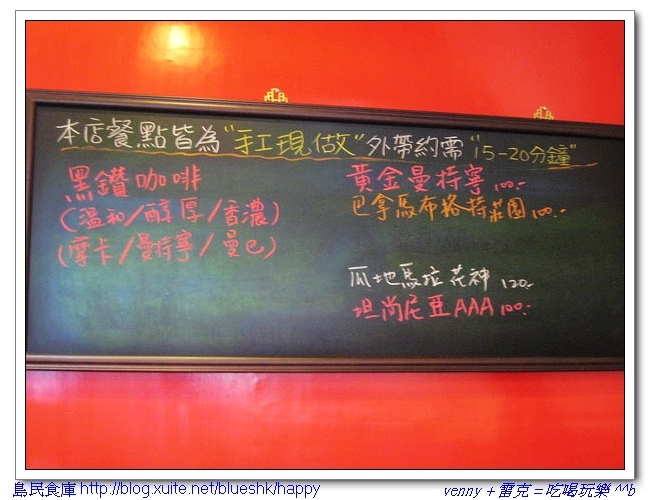 本店餐點皆為"手工現做"外帶約需"15-20分鐘"
黑鑽咖啡
(溫和/醇厚/香濃)
(摩卡/曼特寧/曼巴)
黃金曼特寧 100.-
巴拿馬布格特莊園 100.-
瓜地馬拉花神 120.-
坦尚尼亞AAA 100.-
島民食庫 http://blog.xuite.net/blueshk/happy
venny + 雷克 = 吃喝玩樂 ^^b